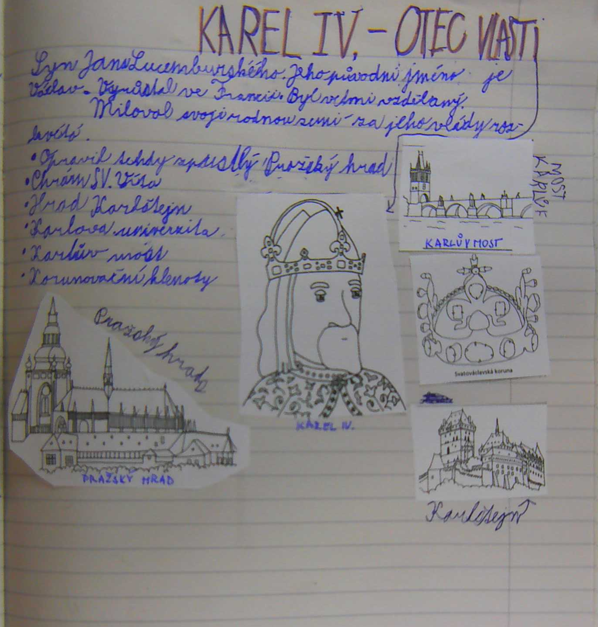 KAREL IV. – OTEC VLASTI
Syn Jana Lucemburského. Jeho původní jméno je
Václav. Vyrůstal ve Francii. Byl velmi vzdělaný.
Miloval svoji rodnou zemi – za jeho vlády roz-
kvétá.
• Opravil tehdy zpustlý Pražský hrad
• Chrám SV. Víta
• Hrad Karlštejn
• Karlova univerzita
• Karlův most
• Korunovační klenoty
MOST
KARLŮV
KARLŮV MOST
Svatováclavská koruna
Pražský hrad
PRAŽSKÝ HRAD
KAREL IV.
Karlštejn